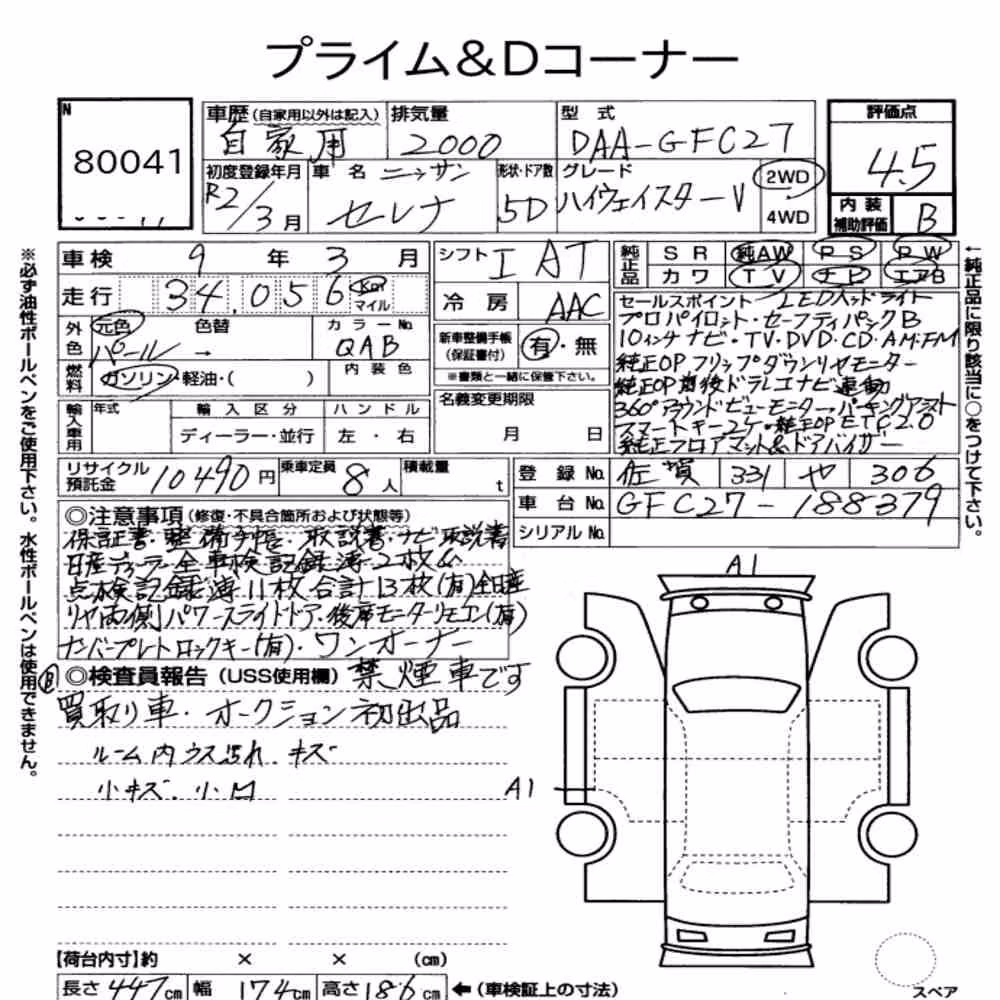 プライム&Dコーナー
N
80041
車歴(自家用以外は記入)
自家用
排気量
2000
型式
DAA-GFC27
評価点
4.5
初度登録年月
R2/3月
車名
ニッサン
セレナ
形状・ドア数
5D
グレード
ハイウェイスターV
2WD
4WD
内装
補助評価
B
車検 9年3月
走行 34,056 Km
マイル
シフト IAT
冷房 AAC
純正品
SR 純AW PS PW
カワ TV ナビ エアB
外色
元色 色替
パール→
カラーNo.
QAB
内装色
燃料
ガソリン・軽油・( )
新車整備手帳
(保証書付)
有・無
※書類と一緒に保管下さい。
名義変更期限
月 日
輸入車用
年式
輸入区分
ハンドル
ディーラー・並行
左・右
セールスポイント LEDヘッドライト
プロパイロット・セーフティパックB
10インチナビ・TV・DVD・CD・AM・FM
純正OPフリップダウンリヤモニター
純正OP前後ドラレコナビ連動
360°アラウンドビューモニター・パーキングアシスト
スマートキー2ケ・純正OP ETC2.0
純正フロアマット&ドアバイザー
リサイクル
預託金
10490円
乗車定員
8人
積載量
t
登録No. 佐賀 331 や 306
車台No. GFC27-188379
シリアルNo.
◎注意事項(修復・不具合箇所および状態等)
保証書・整備手帳・取説書・ナビ取説書
日産ディーラー全車検記録簿・2枚&
点検記録簿11枚合計13枚(有)全日産
リヤ両側パワースライドドア・後席モニターリモコン(有)
ナンバープレートロックキー(有)・ワンオーナー
◎検査員報告(USS使用欄)
禁煙車です
買取り車・オークション初出品
ルーム内ウス汚れ.キズ
小キズ.小凹
A1
A1
※必ず油性ボールペンをご使用下さい。水性ボールペンは使用できません。
←純正品に限り該当に○をつけて下さい。
【荷台内寸】約 × × (cm)
長さ 447cm 幅 174cm 高さ 186cm ←(車検証上の寸法)
スペア